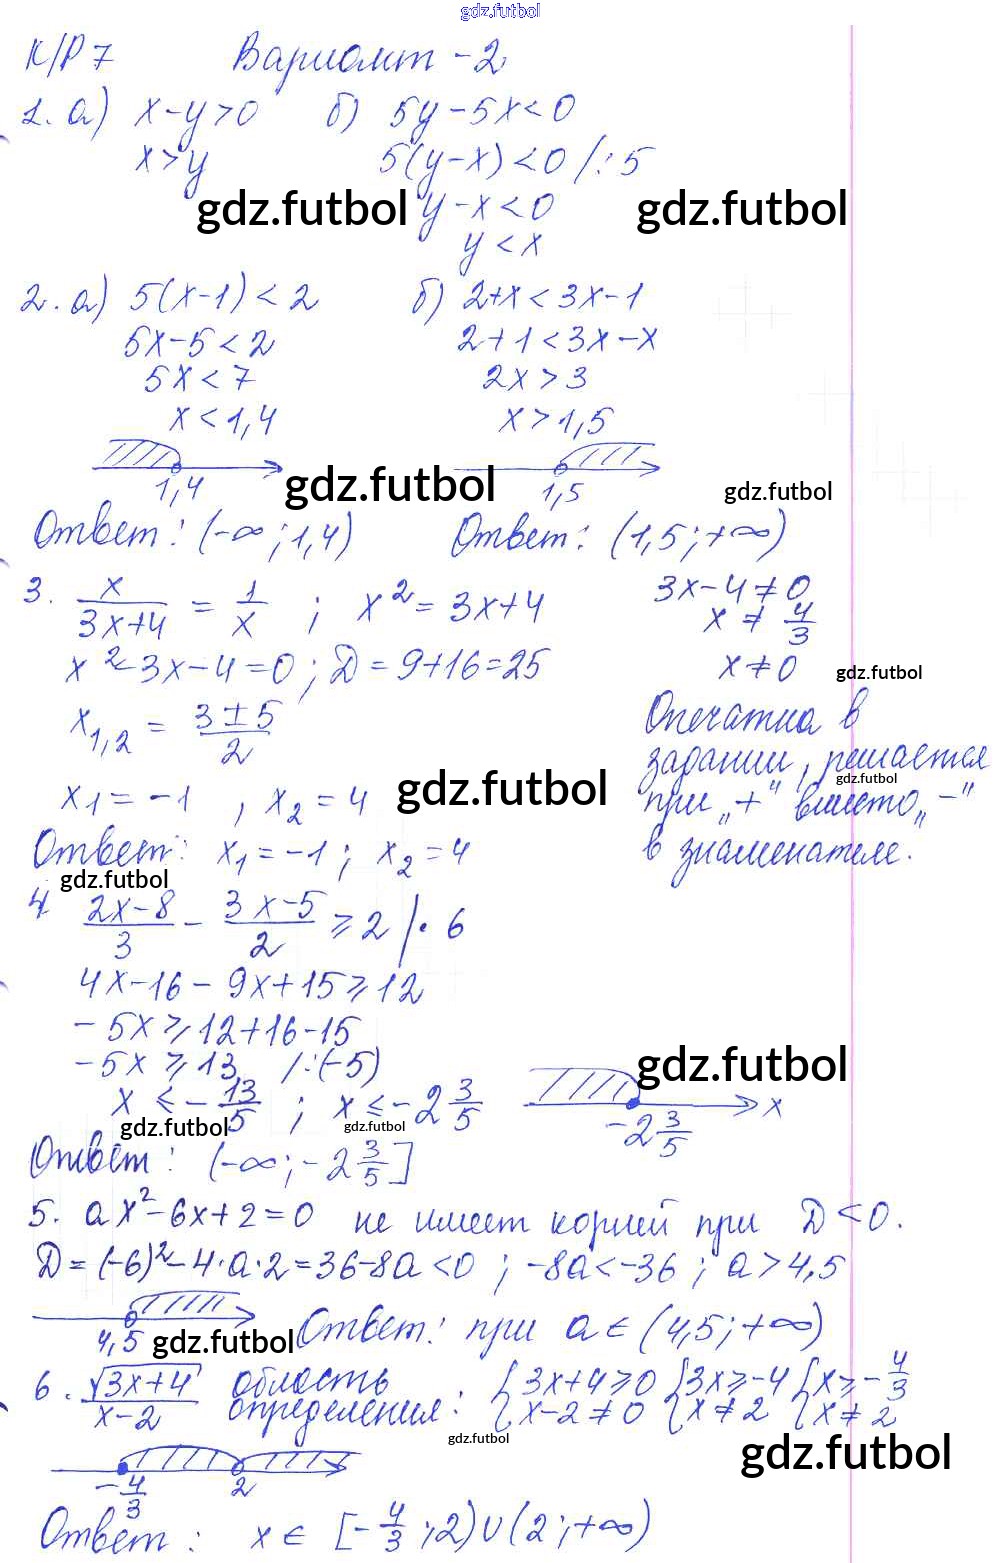 gdz.futbol
К/Р 7 Вариант - 2
1. а) x - y > 0 б) 5y - 5x < 0
x > y 5(y - x) < 0 /: 5
gdz.futbol y - x < 0 gdz.futbol
y < x
2. а) 5(x-1) < 2 б) 2+x < 3x-1
5x-5 < 2 2+1 < 3x-x
5x < 7 2x > 3
x < 1,4 x > 1,5
1,4 gdz.futbol 1,5 gdz.futbol
Ответ: (-∞; 1,4) Ответ: (1,5; +∞)
3. x/(3x+4) = 1/x ; x² = 3x+4 3x-4 ≠ 0
x ≠ 4/3
x²-3x-4=0; D = 9+16=25 x ≠ 0 gdz.futbol
x1,2 = (3±5)/2 Опечатка в
задании, решается
gdz.futbol
x1 = -1 , x2 = 4 gdz.futbol при „+" вместо „-"
Ответ: x1 = -1 ; x2 = 4 в знаменателе.
gdz.futbol
4 (2x-8)/3 - (3x-5)/2 ⩾ 2 /· 6
4x-16 - 9x+15 ⩾ 12
-5x ⩾ 12+16-15
-5x ⩾ 13 /:(-5) gdz.futbol
x ⩽ -13/5 ; x ⩽ -2 3/5 x
gdz.futbol gdz.futbol -2 3/5
Ответ: (-∞; -2 3/5]
5. ax²-6x+2=0 не имеет корней при D < 0.
D = (-6)²-4·a·2=36-8a < 0 ; -8a < -36 ; a > 4,5
4,5 gdz.futbol Ответ: при a ∈ (4,5; +∞)
6. √(3x+4)/(x-2) область определения: { 3x+4 ⩾ 0 { 3x ⩾ -4 { x ⩾ -4/3
x-2 ≠ 0 x ≠ 2 x ≠ 2
gdz.futbol gdz.futbol
-4/3 2
Ответ: x ∈ [-4/3; 2) ∪ (2; +∞)